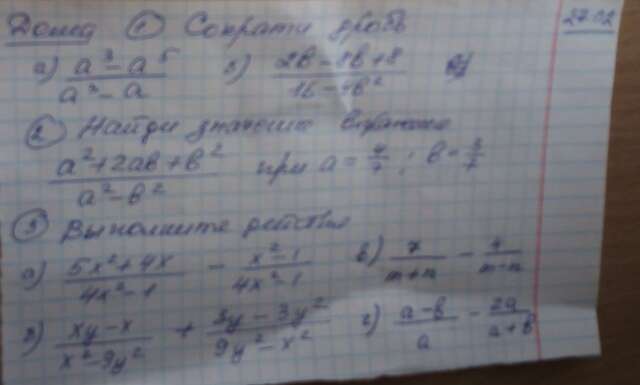 Дома ① Сократи дробь 27.02
а) (a³ - a⁵)/(a³ - a) б)
② Найди значение выражения
(a² + 2ab + b²)/(a² - b²) при a = 4/7; b = 3/7
③ Выполните действия
а) (5x² + 4x)/(4x² - 1) - (x² - 1)/(4x² - 1) в) 7/(m+n) - 4/(m-n)
б) (xy - x)/(x² - 9y²) + (3y - 3y²)/(9y² - x²) г) (a - b)/a - 2a/(a + b)